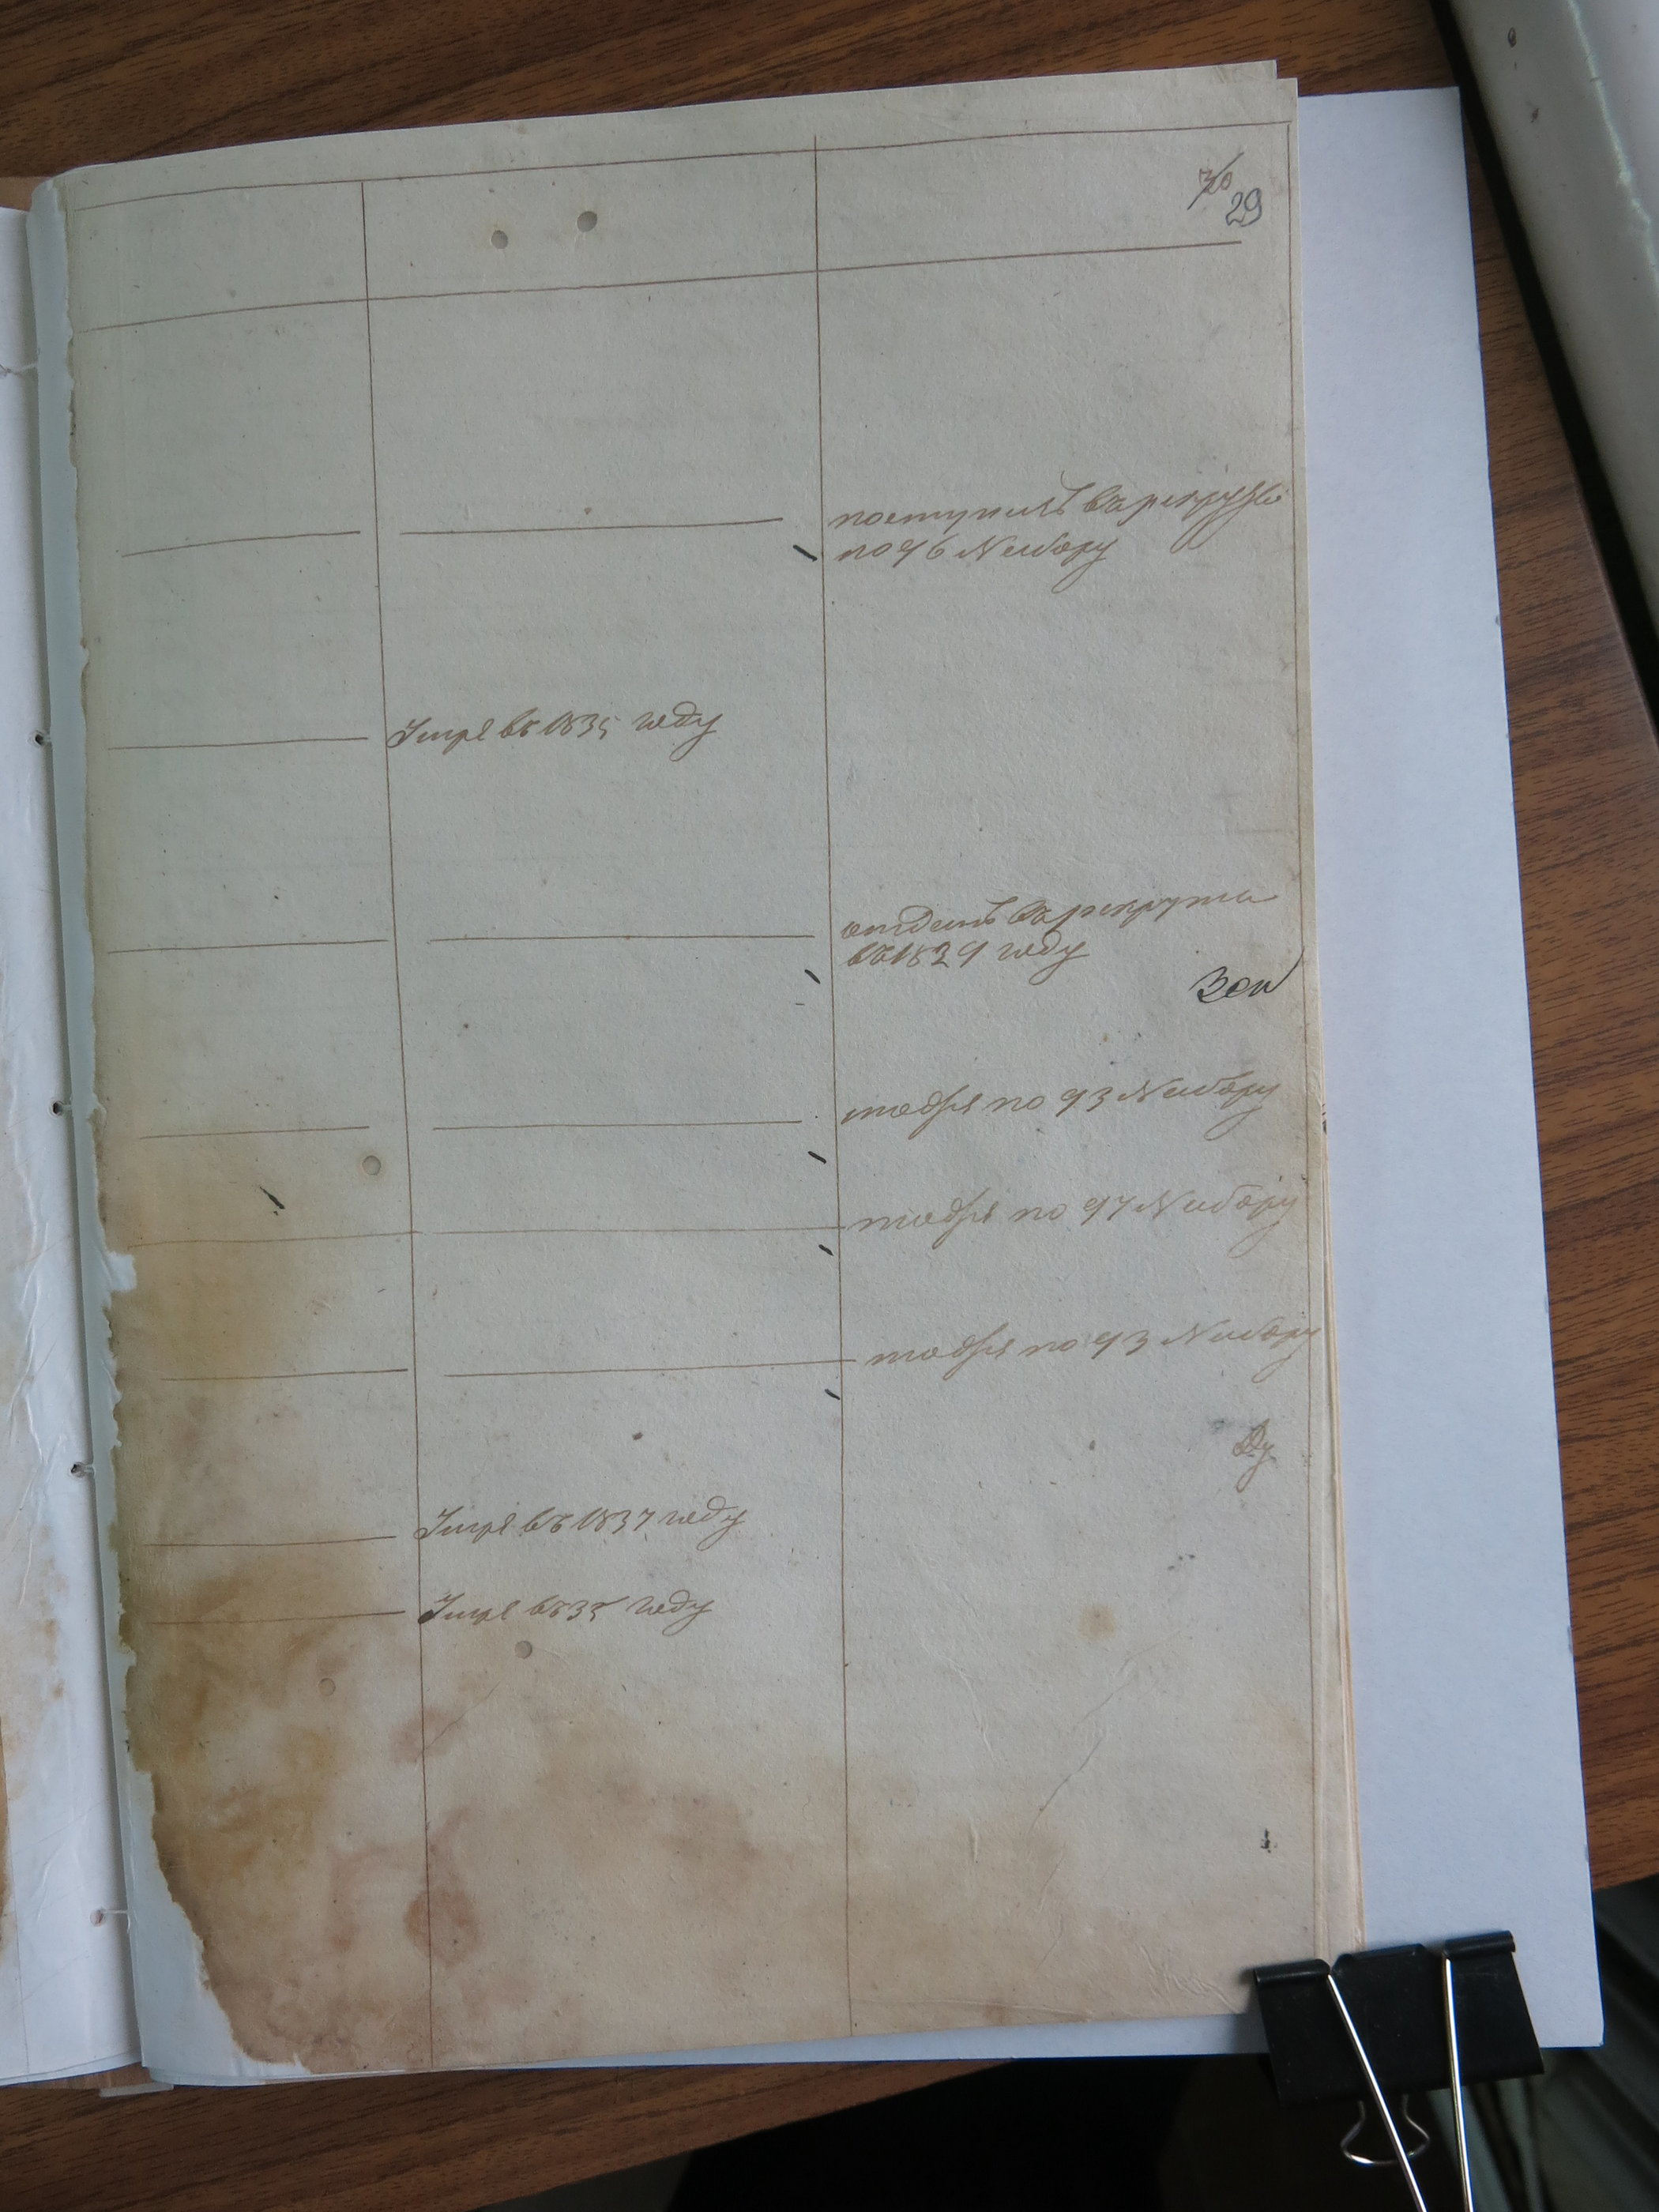 30
29
поступилъ въ рекруты
по 96 Набору
Умре въ 1835 году
отданъ въ рекруты
въ 1829 году
по 93 Набору
по 97 Набору
по 93 Набору
Умре въ 1837 году
Умре въ 35 году